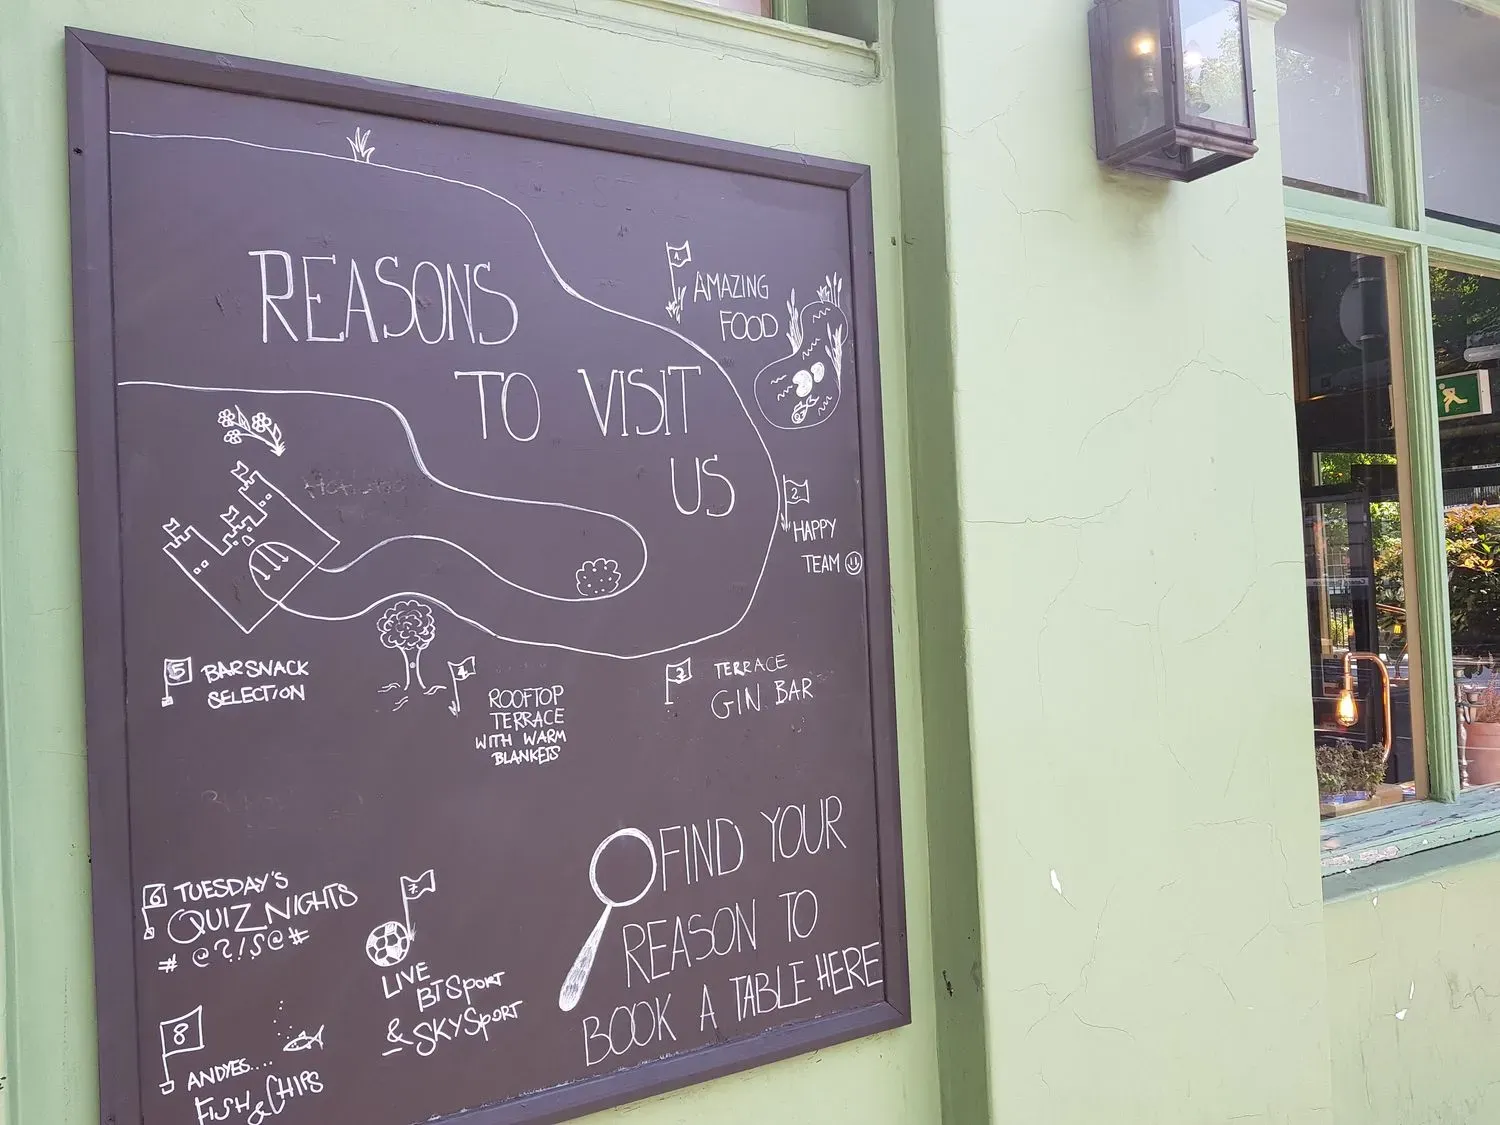 REASONS
TO VISIT
US
1.
AMAZING
FOOD
2.
HAPPY
TEAM
3
TERRACE
GIN BAR
4
ROOFTOP
TERRACE
WITH WARM
BLANKETS
5
BAR SNACK
SELECTION
6
TUESDAY'S
QUIZ NIGHTS
# @?!S@#
7.
LIVE
BT Sport
& SKY Sport
8
ANDYES....
FISH & CHIPS
FIND YOUR
REASON TO
BOOK A TABLE HERE